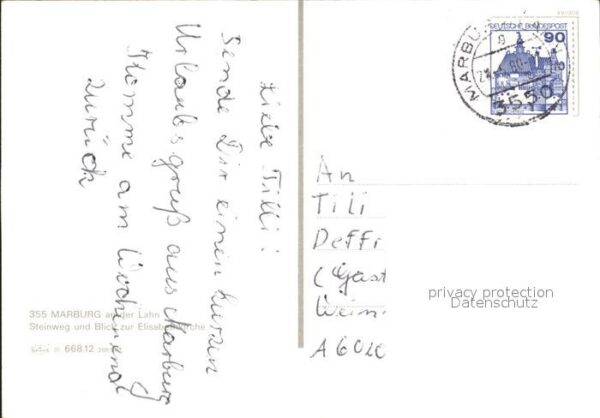 Liebe Tilli!
Sende Dir einen kurzen
Urlaubsgruß aus Marburg
Komme am Wochenend
zurück
355 MARBURG an der Lahn
Steinweg und Blick zur Elisabethkirche
668.12
DEUTSCHE BUNDESPOST
90
MARBU
3550
An
Tili
Deffr
(Gast
Wein
A 6020
privacy protection
Datenschutz